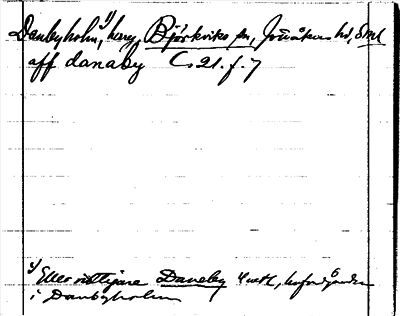 Danbyholm,¹) herrg, Björkviks sn, Jönåkers hd, Sml
aff danaby C 21. f. 7
¹) Eller riktigare Daneby 4 mtl, hufvudgården
i Danbyholm